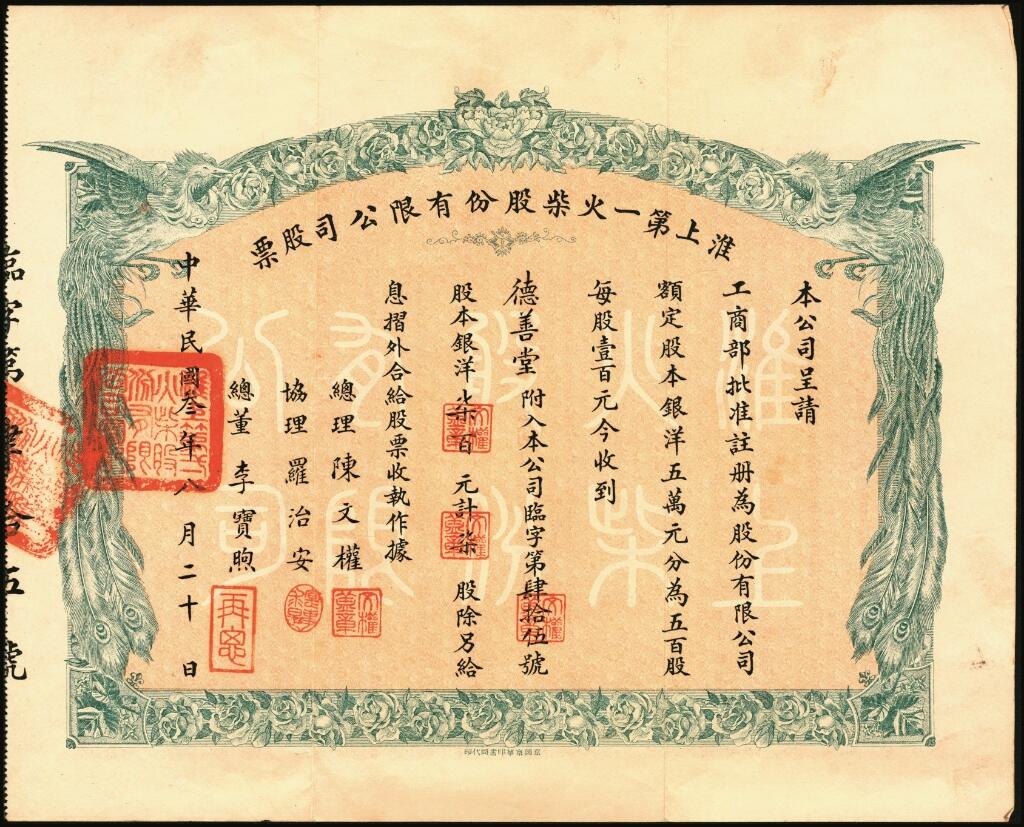 淮上第一火柴股份有限公司股票
本公司呈請
工商部批准註册為股份有限公司
額定股本銀洋五萬元分為五百股
每股壹百元今收到
德善堂附入本公司臨字第肆拾伍號
股本銀洋柒百元計柒股除另給
息摺外合給股票收執作據
總理陳文權
協理羅治安
總董李寶煦
中華民國叁年八月二十日
臨字第肆拾五號
淮上火柴股份有限公司